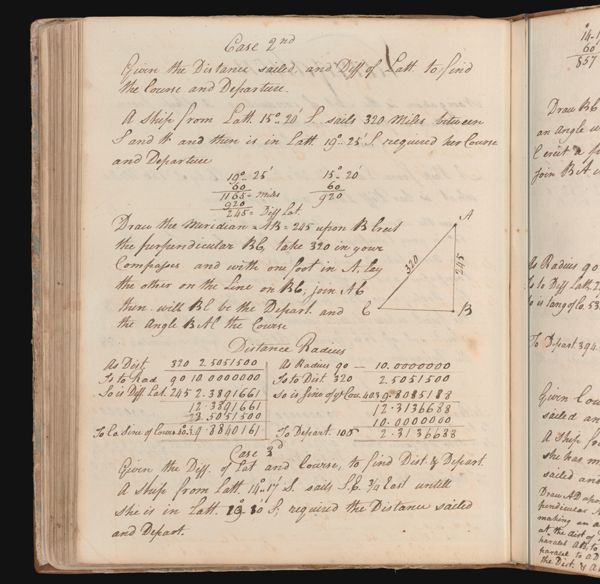 Case 2nd
Given the Distance sailed, and Diff of Latt. to find
the Course and Departure.
A Ship from Latt. 15°.. 20' S. sails 320 Miles between
S and W and then is in Latt. 19°.. 25' S. required her Course
and Departure
19°.. 25' 15°.. 20'
60 60
1165 = Miles 920
920
245 = Diff Lat.
Draw the Meridian = AB = 245 upon B Erect
the perpendicular BC, take 320 in your
Compasses and with one foot in A. lay
the other on the Line on BC, join AC
then will BC be the Depart. and
the Angle BAC the Course
A
320
245
C
B
Distance Radius
As Dist 320 2.5051500
Is to Rad 90 10.0000000
So is Diff Lat. 245 2.3891661
12.3891661
2.5051500
To Co. Sine of Course 9.8840161
As Radius 90 — 10.0000000
Is to Dist 320 2.5051500
So is Sine of Cou. 9.8085188
12.3136688
10.0000000
To Depart. 2.3136688
Case 3d
Given the Deff. of Lat and Course, to find Dist & Depart.
A Ship from Latt. 14°.. 17' S. sails S.E. 3/4 East untill
She is in Latt. S, required the Distance sailed
and Depart.
60
857
Draw
an angle
C erect a
join BA
As Radius 90
To Depart 394
Given
sailed an
A Ship
she has m
sailed and
Draw AD
making an
at the dist of
parallel to
the Dist. &